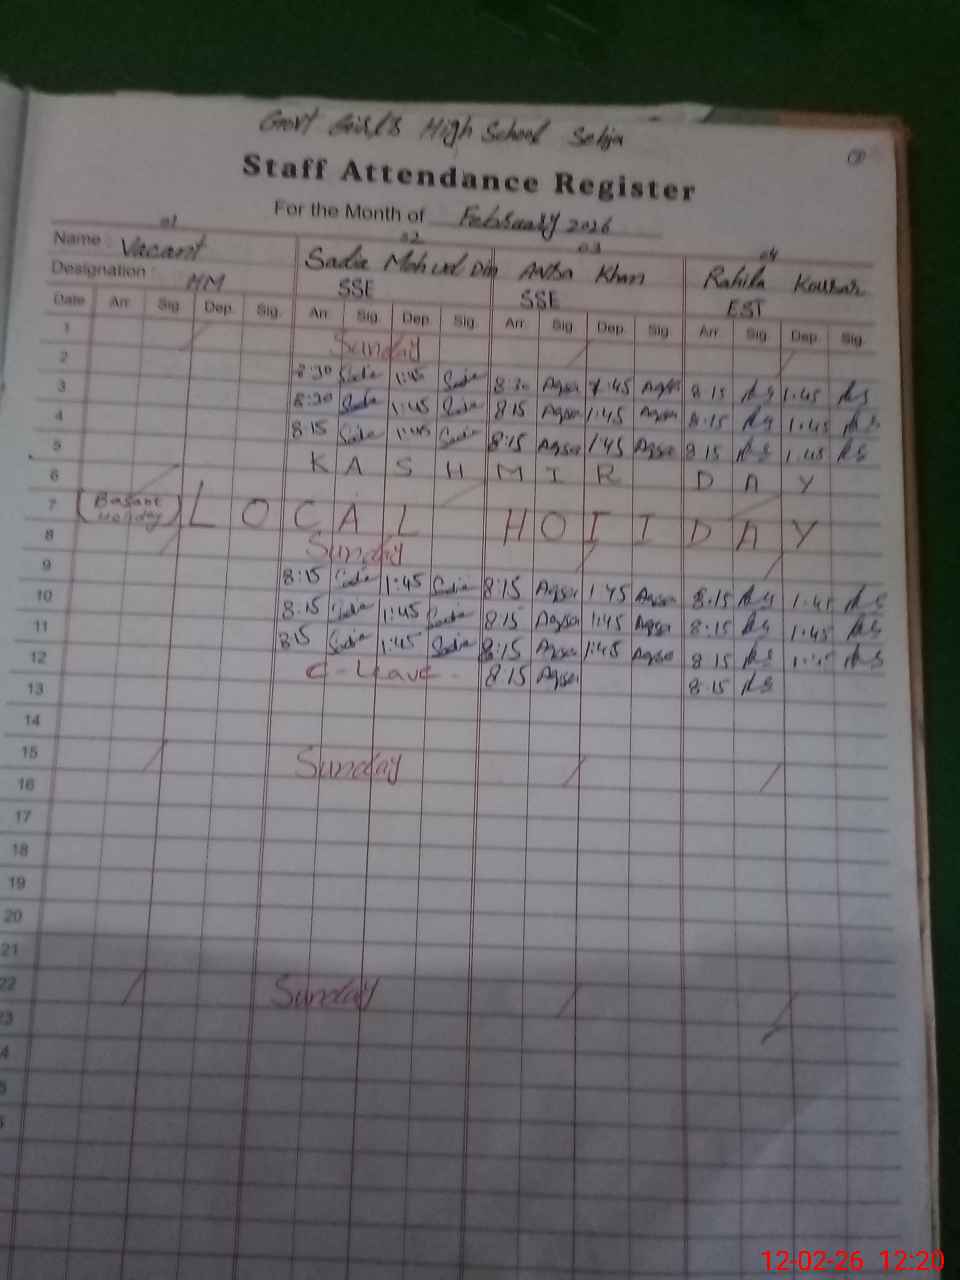 Govt Girl's High School Sehja
Staff Attendance Register
For the Month of February 2026
01 02 03 04
Name : Vacant Sadia Moh ud Din Khan Rahila Kousar
Designation : HM SSE SSE EST
Date Arr. Sig. Dep. Sig. Arr. Sig. Dep. Sig. Arr. Sig. Dep. Sig. Arr. Sig. Dep. Sig.
1 Sunday
2 8:30 Sadia 1:45 Sadia 8:30 Aqsa 1:45 Aqsa 8:15 RS 1:45 RS
3 8:30 Sadia 1:45 Sadia 8:15 Aqsa 1:45 Aqsa 8:15 RS 1:45 RS
4 8:15 Sadia 1:45 Sadia 8:15 Aqsa 1:45 Aqsa 8:15 RS 1:45 RS
5 KASHMIR DAY
6 (Basant Holiday) LOCAL HOLIDAY
7
8 Sunday
9 8:15 Sadia 1:45 Sadia 8:15 Aqsa 1:45 Aqsa 8:15 RS 1:45 RS
10 8:15 Sadia 1:45 Sadia 8:15 Aqsa 1:45 Aqsa 8:15 RS 1:45 RS
11 8:15 Sadia 1:45 Sadia 8:15 Aqsa 1:45 Aqsa 8:15 RS 1:45 RS
12 C-Leave 8:15 Aqsa 8:15 RS
13
14
15 Sunday
16
17
18
19
20
21
22 Sunday
23
12-02-26 12:20